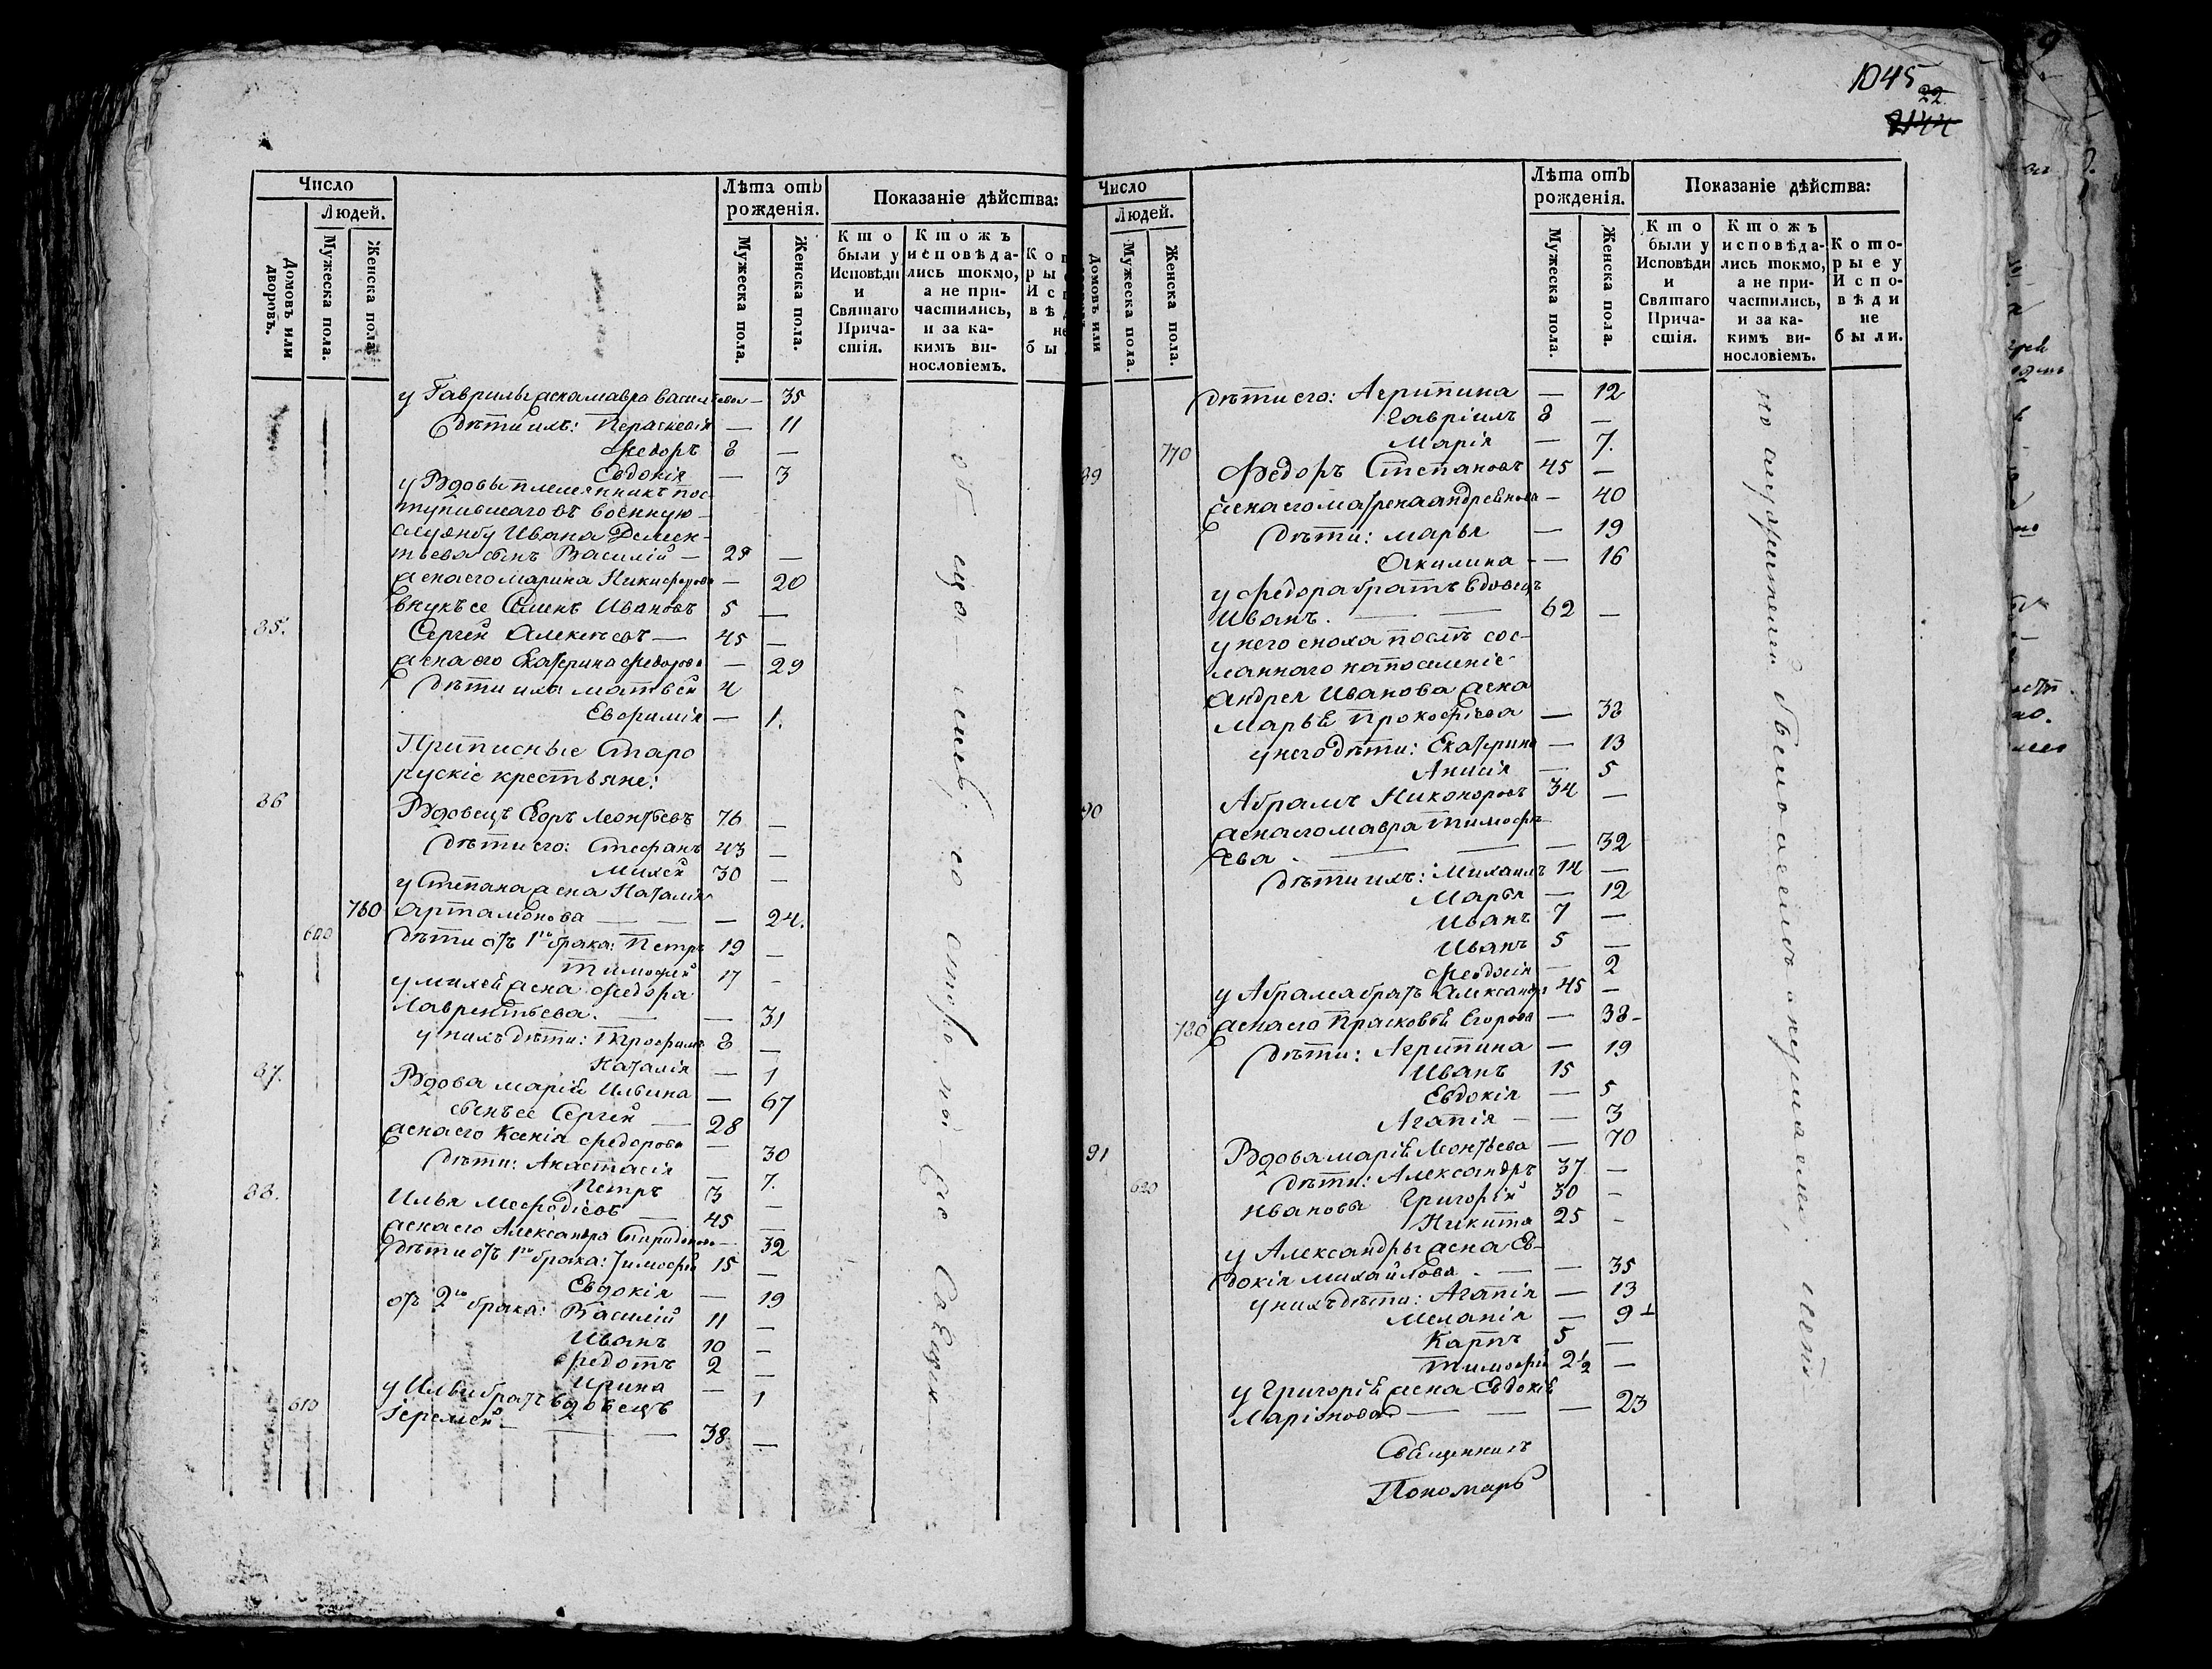 Число
Людей.
Домовъ или дворовъ.
Мужеска пола.
Женска пола.
Лѣта отъ рожденія.
Мужеска пола.
Женска пола.
Показаніе дѣйства:
Кто были у Исповѣди и Святаго Причастія.
Ктожъ исповѣдались токмо, а не причастились, и за какимъ винословіемъ.
у Гаврилы жена мавра васильева — 35
дѣти ихъ: Параскевія — 11
Федоръ 8 —
Евдокія — 3
у Вдовы племянникъ пос-
тупившаго въ военную
службу Ивана Демен-
тьева сынъ Василій — 28 —
жена его марина Никифорова — 20
внукъ ее Семенъ Ивановъ 5 —
85. Сергей Алексѣевъ — 45 —
жена его Екатерина федорова — 29
дѣти ихъ матвей 4
Евфимія — 1.
Приписные Старо
руские крестьяне:
86 Вдовецъ Егоръ Леонтьевъ 76 —
дѣти его: Стефанъ 43 —
Михей 30 —
у Степана жена Наталья
760 Артамонова — — — 24.
600 дѣти отъ 1го брака: Петръ 19 —
Тимофей 17 -
у михея жена федора
Лаврентьева. — — 31
у нихъ дѣти: Трофимъ 8 —
Наталія — 1
87. Вдова марія Ильина — 67
сынъ ее Сергей — 28
жена его Ксенія федорова — 30
дѣти: Анастасія — 7.
Петръ 3 -
88. Илья Мефодіевъ — 45 —
жена его Александра Спиридонова — 32
дѣти отъ 1го брака: Тимофей 15 —
Евдокія — 19
отъ 2го брака: Василій 11 —
Иванъ 10 —
федотъ 2 —
Ирина — 1
у Ильи братъ вдовецъ
610 Іеремей — — — 38 —
1045
22
2144
Число
Людей.
Домовъ или
Мужеска пола.
Женска пола.
Лѣта отъ рожденія.
Мужеска пола.
Женска пола.
Показаніе дѣйства:
Кто были у Исповѣди и Святаго Причастія.
Ктожъ исповѣдались токмо, а не причастились, и за какимъ винословіемъ.
Которые у Исповѣди не были.
дѣти его: Агрипина — 12
Гавріилъ 8 —
770 Марія — 7.
89 Федоръ Степановъ 45 —
жена его матрена андревнова — 40
дѣти: марья — 19
Акилина — 16
у федора братъ вдовецъ
Иванъ. — — 62 —
у него сноха послѣ сос-
ланнаго на поселеніе
Андрея Иванова жена
Марья Прокофіева — 38
у него дѣти: Екатерина — 13
Анисія — 5
90 Абрамъ Никоноровъ 34 —
жена его мавра тимофѣ-
ева. — — — 32
дѣти ихъ: Михаилъ 14 —
Марья — 12
Иванъ 7 —
Иванъ 5 —
Феодосія — 2
у Абрама братъ Александръ 45 —
780 жена его Прасковья Егорова — 38 -
дѣти: Агрипина — 19
Иванъ 15
Евдокія — 5
Агапія — — 3
91 Вдова марія Леонтьева — 70
дѣти: Александръ 37 —
620 Иванова Григорій 30 -
Никита 25 -
у Александры жена Ев-
докія михайлова. — — 35
у нихъ дѣти: Агапія — 13
Меланія — 9
Карпъ 5 —
тимофей 2½ —
у Григорія жена Евдокія
Ларіонова — — — 23
Священникъ
Пономарь